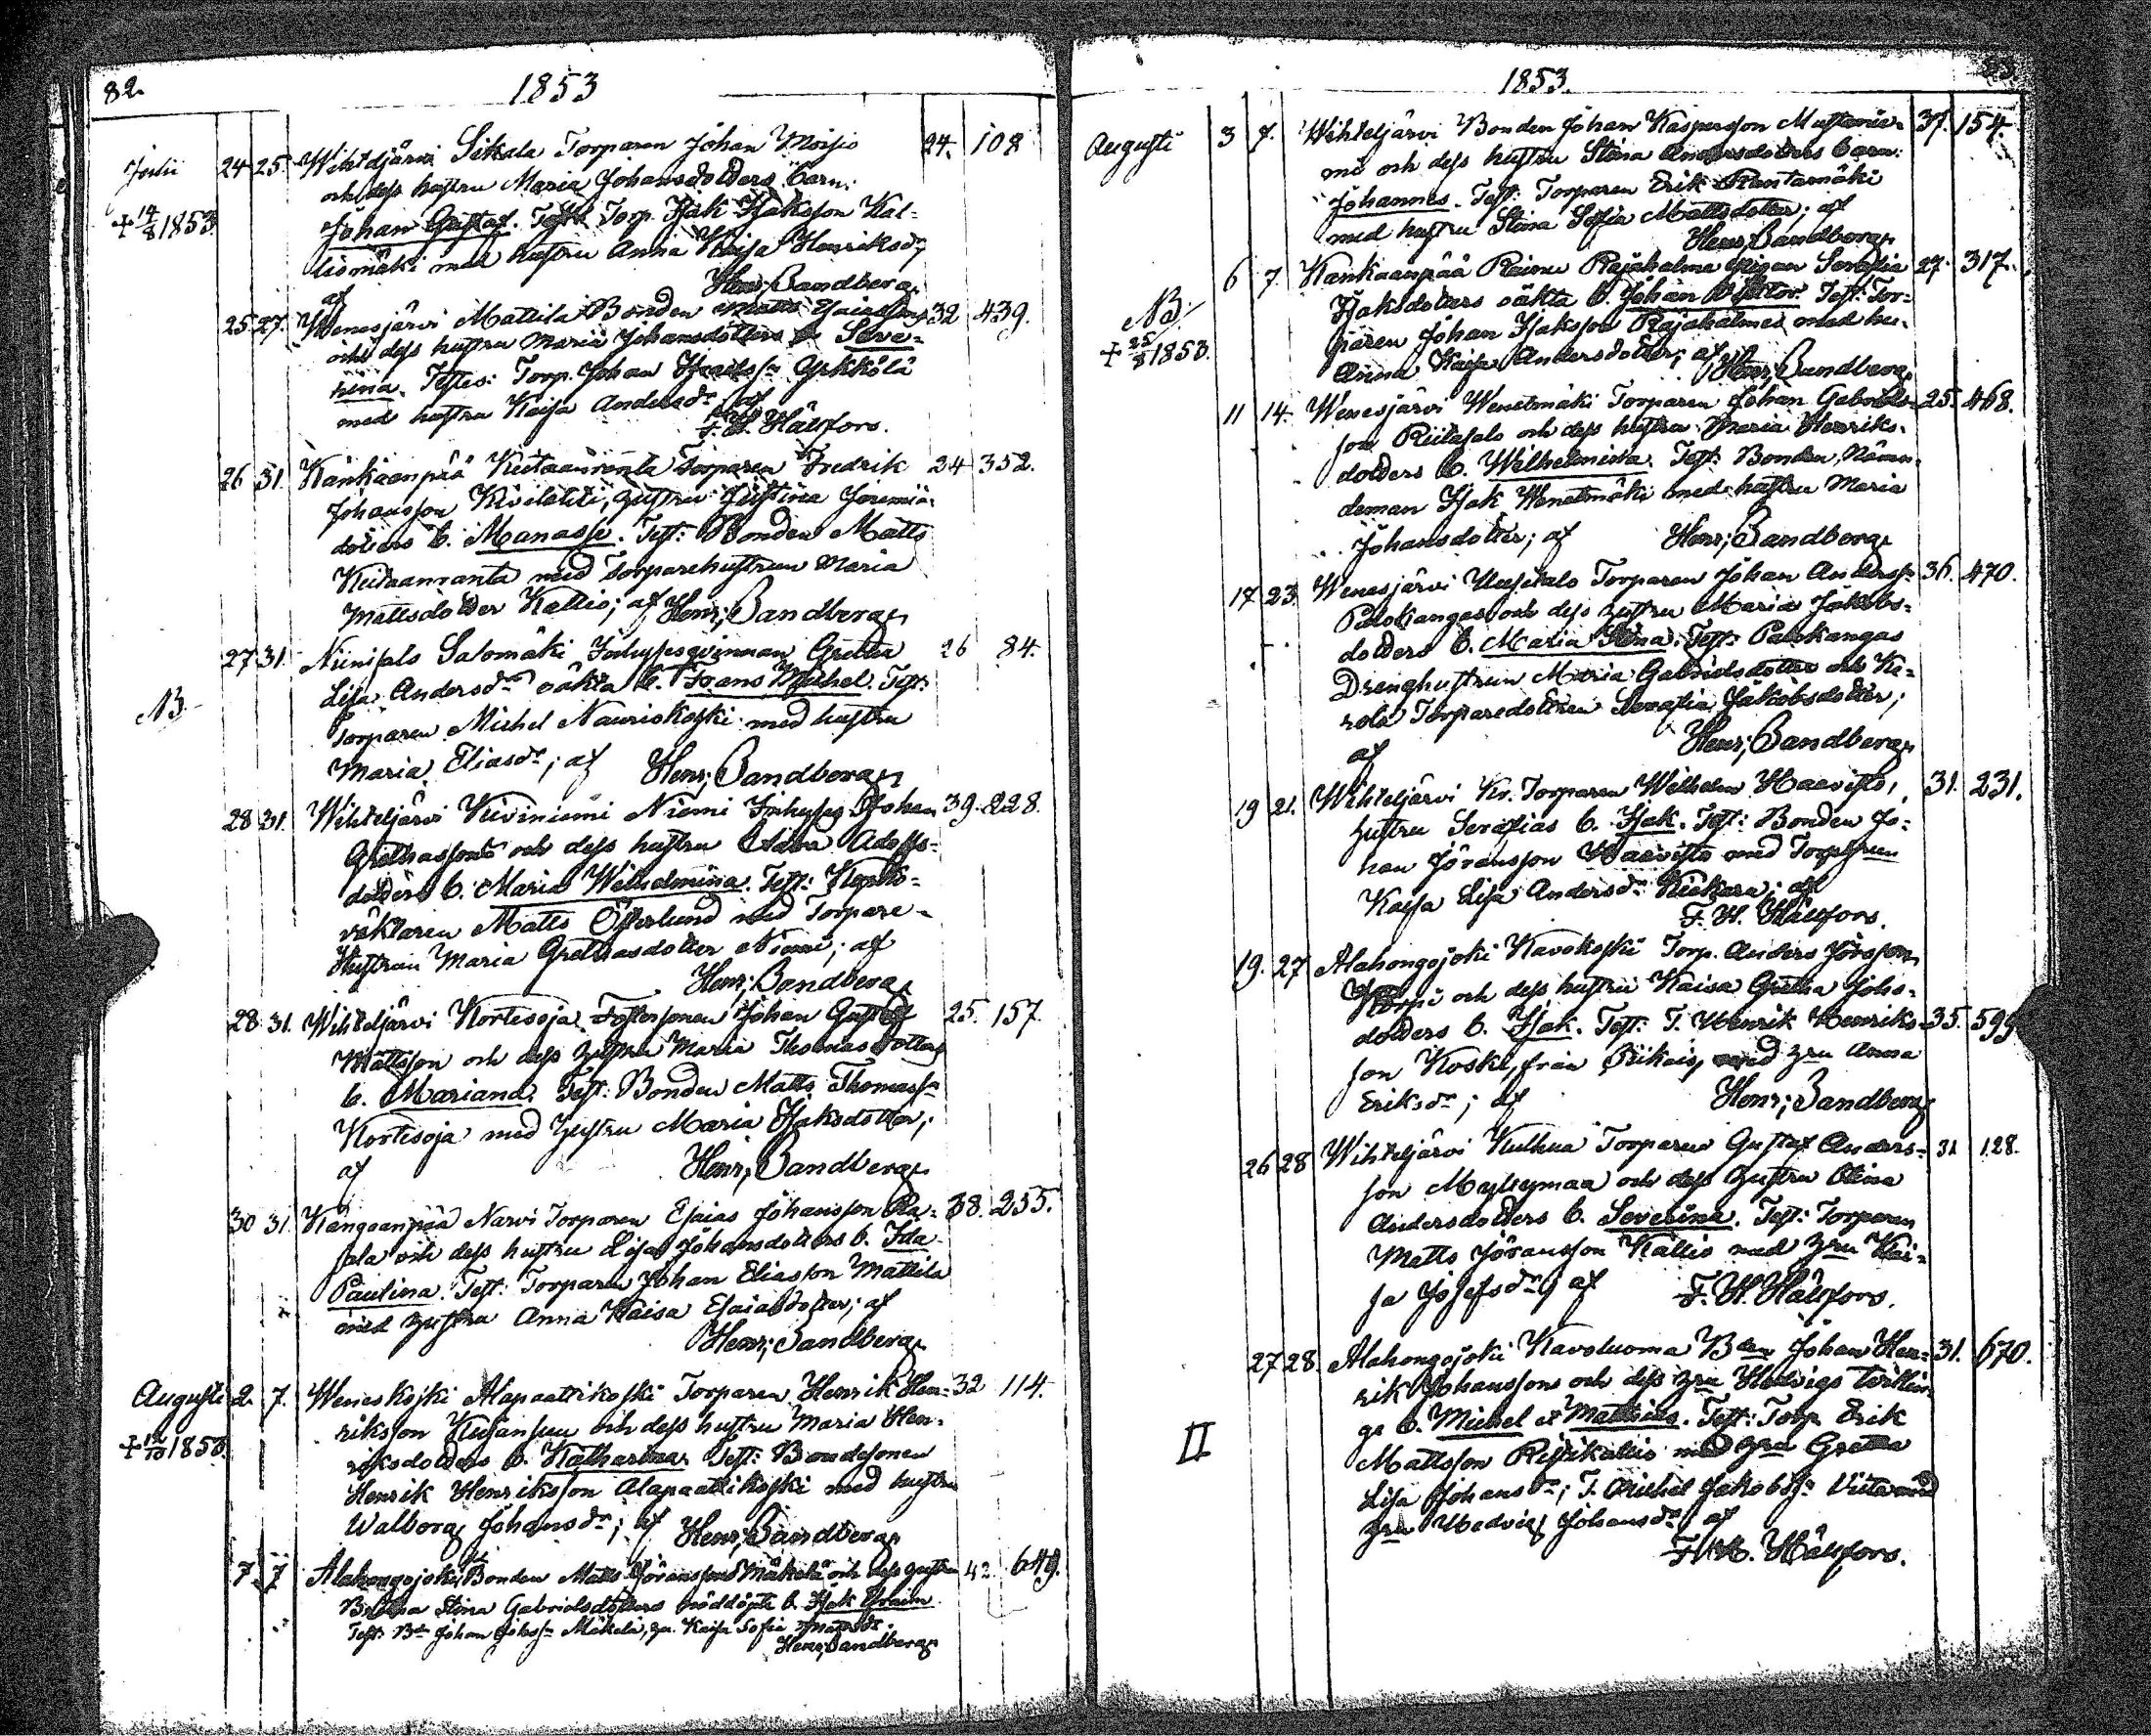 82.
1853
Julii 24 25. Wihteljärvi Sikala Torparen Johan Moisio 24. 108
och dess hustru Maria Johansdotters barn:
+ 14/8 1853. Johan Gustaf. Test. Torp. Isak Isaksson Kal-
liomäki med hustru Anna Kaisa Henriksdr
af Henr; Sandberg
25 27. Wenesjärvi Mattila Bonden Matts Esaiassons 32 439.
och dess hustru Maria Johansdotters b. Seve-
rina. Testes: Torp. Johan Yrkkölä
med hustru Kaisa Andersdr; af
F. H. Hällfors.
26 31. Kankaanpää Keitaanranta Torparen Fredrik 24 352.
Johansson Kivilahti, hustru Justina Jeremiæ
dotters b. Manasse. Test: Bonden Matts
Keitaanranta med Torparehustrun Maria
Mattsdotter Kallio; af Henr; Sandberg
27 31. Niinisalo Salomäki Inhysesqvinnan Gretha 26 84.
Lisa Andersdrs oäkta b. Frans Michel. Test.
NB Torparen Michel Nauriskoski med hustru
Maria Eliasdr; af Henr; Sandberg
28 31. Wihteljärvi Kiviniemi Niemi Inhyses Johan 39. 228.
Grethassons och dess hustru Adolfs-
dotters b. Maria Wilhelmina. Test:
väktaren Matts Österlund med Torpare-
Hustrun Maria Grethasdotter Niemi; af
Henr; Sandberg
28 31. Wihteljärvi Kortesoja Fostersonen Johan Gustaf 25. 157.
Mattsson och dess hustru Maria Thomasdotters
b. Mariana. Test: Bonden Matts Thomass:n
Kortesoja med hustru Maria Isaksdotter;
af Henr; Sandberg
30 31. Kangaanpää Narvi Torparen Esaias Johansson Ra- 38. 255.
jala och dess hustru Lisa Johansdotters b. Ida
Paulina. Test: Torparen Johan Eliasson Mattila
med hustru Anna Kaisa Esaiasdotter; af
Henr; Sandberg
Augusti 2. 7. Weneskoski Alapaattikoski Torparen Henrik Hen- 32 114.
riksson och dess hustru Maria Hen-
+ 12/10 1853. riksdotters b. Katharina. Test: Bondesonen
Henrik Henriksson Alapaattikoski med hustru
Walborg Johansdr; af Henr; Sandberg
7 7 Alahongojoki Bonden Matts Göransson Mäkelä och dess hustru 42. 649.
Stina Gabrielsdotters nöddöpte b. Isak Efraim.
Test: Bn Johan Mäkelä, hu. Kaisa Sofia
Henr; Sandberg
1853.
Augusti 3 7. Wihteljärvi Bonden Johan Kaspersson Mustanie- 37. 154.
mi och dess hustru Stina Andersdotters barn:
Johannes. Test: Torparen Erik Rantamäki
med hustru Stina Sofia Mattsdotter; af
Henr; Sandberg
6 7. Kankaanpää Raimi Rajahalme Pigan Serafia 27. 317.
NB Isaksdotters oäkta b. Johan Viktor. Test: Tor-
+ 25/8 1853. paren Johan Isaksson Rajahalmes med hu.
Anna Kaisa Andersdotter; af Henr; Sandberg
11 14. Wenesjärvi Wenetmäki Torparen Johan Gabriels- 25. 468.
son Riitasalo och dess hustru Maria Henriks-
dotters b. Wilhelmina. Test: Bonden, Näm-
deman Isak Wenetmäki med hustru Maria
Johansdotter; af Henr; Sandberg
17 23. Wenesjärvi Uusitalo Torparen Johan Anderss:n 36. 470.
Palokangas och dess hustru Maria Jakobs-
dotters b. Maria Stina. Test: Palokangas
Drenghustrun Maria Gabrielsdotter och Ke-
rola Torparedottren Serafia Jakobsdotter;
af Henr; Sandberg
19 21. Wihteljärvi Kr. Torparen Wilhelm Haavisto, 31. 231.
hustru Serafias b. Isak. Test: Bonden Jo-
han Göransson Haavisto med Torphrun
Kaisa Lisa Andersdr Kiekara; af
F. H. Hällfors.
19. 27. Alahongojoki Kavokoski Torp. Anders Jörsson
och dess hustru Kaisa Gretha Johs-
dotters b. Isak. Test: T. Henrik Henriks- 35. 599
son Koski, från med hru Anna
Eriksdr; af Henr; Sandberg
26 28 Wihteljärvi Kulhua Torparen Gustaf Anders- 31 128.
son Myllymaa och dess hustru Stina
Andersdotters b. Severina. Test: Torparen
Matts Göransson Kallio med hru Kai-
sa Josefsdr; af F. H. Hällfors.
27 28. Alahongojoki Kavoluoma Bden Johan Hen- 31. 670.
rik Johanssons och dess hru Hedvigs twillin-
II ge b. Michel et Matthias. Test: Torp. Erik
Mattsson Ristikallio med hru Gretha
Lisa Johansdr; T. Michel Jakobss:n
hru Hedvig Johansdr; af
F. H. Hällfors.